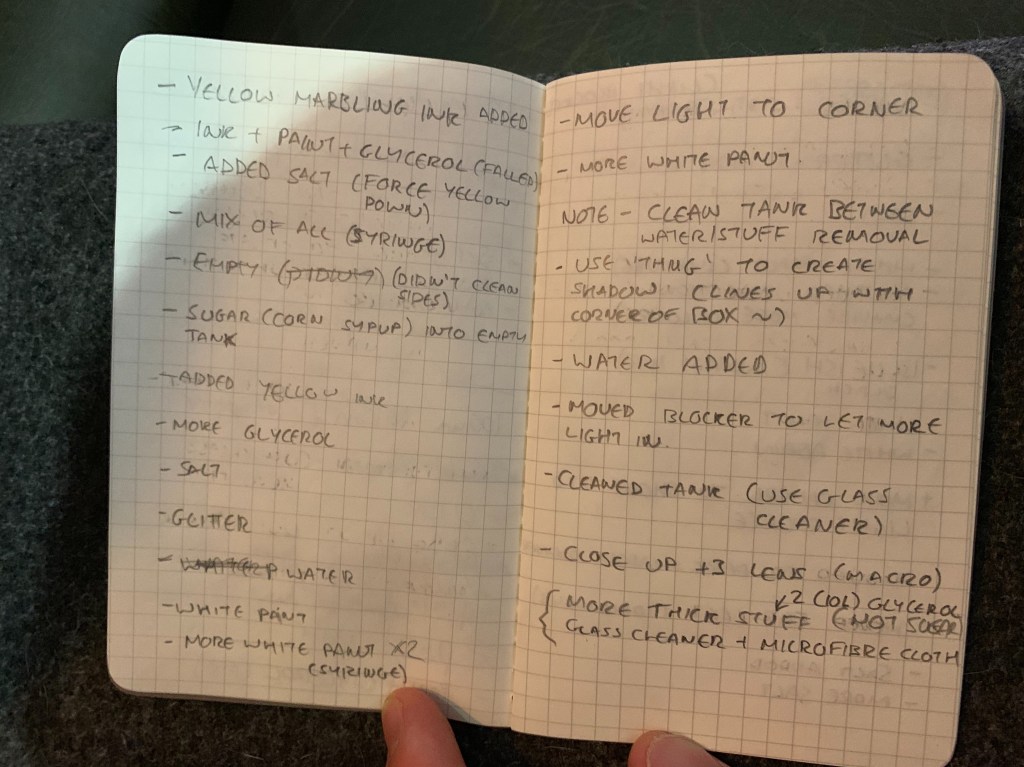 - YELLOW MARBLING INK ADDED
- INK + PAINT + GLYCEROL (FALLED)
- ADDED SALT (FORCE YELLOW
DOWN)
- MIX OF ALL (SYRINGE)
- EMPTY (DIDN'T CLEAN
SIDES)
- SUGAR (CORN SYPUP) INTO EMPTY
TANK
- ADDED YELLOW INK
- MORE GLYCEROL
- SALT
- GLITTER
- WATER
- WHITE PAINT
- MORE WHITE PAINT X2
(SYRINGE)
- MOVE LIGHT TO CORNER
- MORE WHITE PAINT.
NOTE - CLEAN TANK BETWEEN
WATER/STUFF REMOVAL
- USE 'THING' TO CREATE
SHADOW (LINES UP WITH
CORNER OF BOX ~)
- WATER ADDED
- MOVED BLOCKER TO LET MORE
LIGHT IN.
- CLEANED TANK (USE GLASS
CLEANER)
- CLOSE UP +3 LENS (MACRO)
↙2 (10L) GLYCEROL
MORE THICK STUFF (NOT SUGAR)
GLASS CLEANER + MICROFIBRE CLOTH